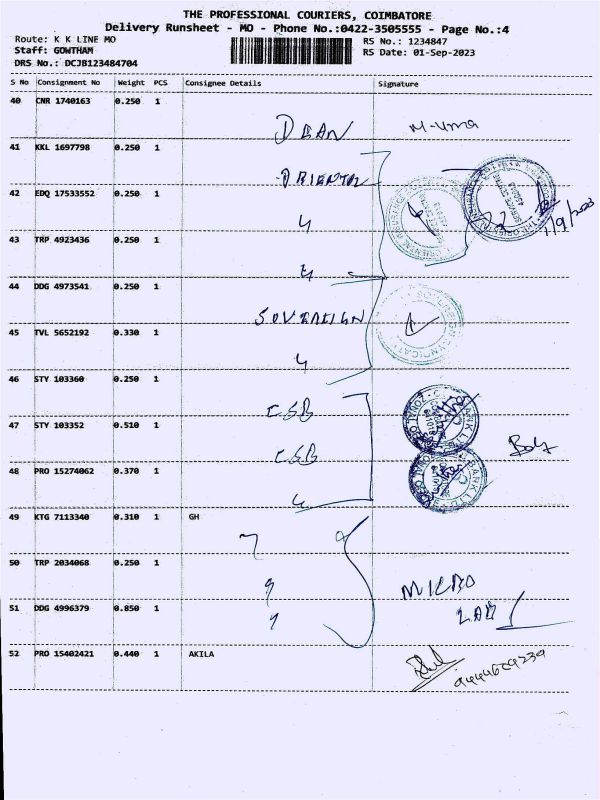 THE PROFESSIONAL COURIERS, COIMBATORE
Delivery Runsheet - MO - Phone No.:0422-3505555 - Page No.:4
Route: K K LINE MO
RS No.: 1234847
Staff: GOWTHAM
RS Date: 01-Sep-2023
DRS No.: DCJB123484704
S No Consignment No Weight PCS Consignee Details Signature
40 CNR 1740163 0.250 1
DEAN M-Uma
41 KKL 1697798 0.250 1
ORIENTAL
42 EDQ 17533552 0.250 1
1/9/2023
43 TRP 4923436 0.250 1
44 DDG 4973541 0.250 1
SOVEREIGN
45 TVL 5652192 0.330 1
46 STY 103360 0.250 1
CSB
47 STY 103352 0.510 1
CSB
48 PRO 15274062 0.370 1
49 KTG 7113340 0.310 1 GH
50 TRP 2034068 0.250 1
MICRO
51 DDG 4996379 0.850 1
LAB
52 PRO 15402421 0.440 1 AKILA